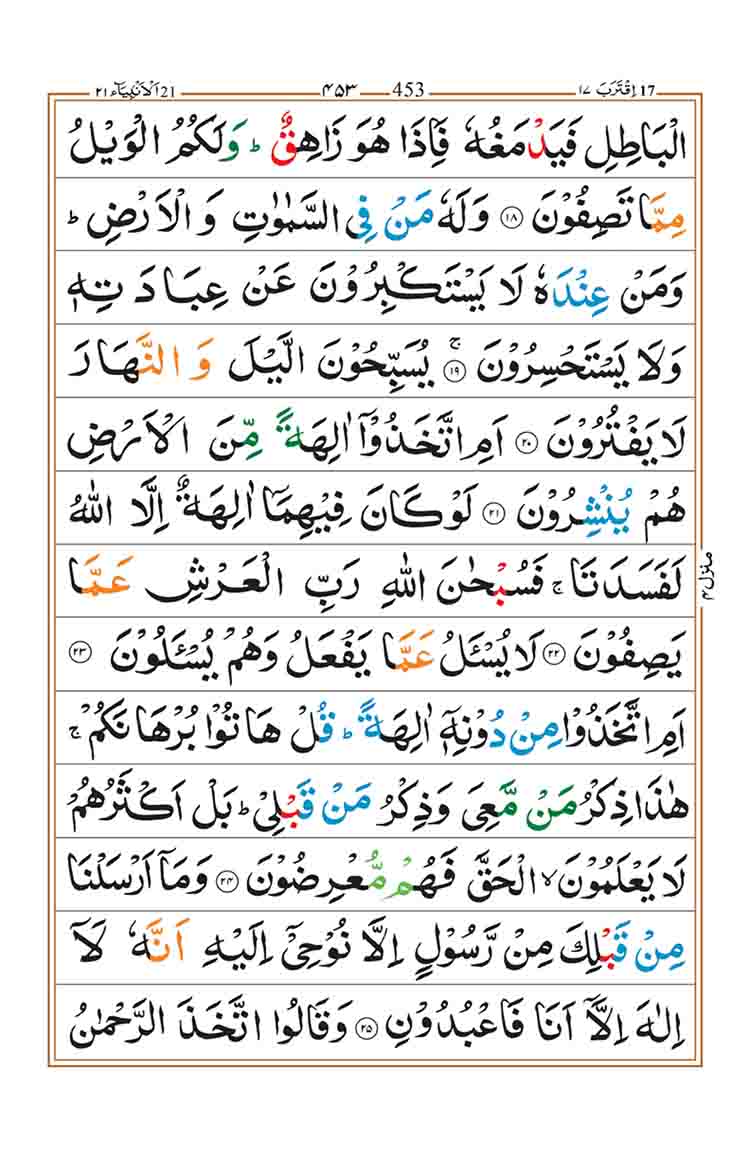 اِقْتَرَبَ ١٧ 17 453 ۴۵۳ اَلْاَنْۢبِيَآء ٢١ 21
الْبَاطِلِ فَيَدْمَغُهٗ فَاِذَا هُوَ زَاهِقٌ ؕ وَلَكُمُ الْوَيْلُ
مِمَّا تَصِفُوْنَ ۱۸ وَلَهٗ مَنْ فِي السَّمٰوٰتِ وَ الْاَرْضِ ؕ
وَمَنْ عِنْدَهٗ لَا يَسْتَكْبِرُوْنَ عَنْ عِبَادَتِهٖ
وَلَا يَسْتَحْسِرُوْنَ ۚ ۱۹ يُسَبِّحُوْنَ الَّيْلَ وَ النَّهَارَ
لَا يَفْتُرُوْنَ ۲۰ اَمِ اتَّخَذُوْۤا اٰلِهَةً مِّنَ الْاَرْضِ
هُمْ يُنْشِرُوْنَ ۲۱ لَوْ كَانَ فِيْهِمَاۤ اٰلِهَةٌ اِلَّا اللّٰهُ
لَفَسَدَتَا ۚ فَسُبْحٰنَ اللّٰهِ رَبِّ الْعَرْشِ عَمَّا
يَصِفُوْنَ ۲۲ لَا يُسْـَٔلُ عَمَّا يَفْعَلُ وَهُمْ يُسْـَٔلُوْنَ ۲۳
اَمِ اتَّخَذُوْا مِنْ دُوْنِهٖۤ اٰلِهَةً ؕ قُلْ هَاتُوْا بُرْهَانَكُمْ ۚ
هٰذَا ذِكْرُ مَنْ مَّعِيَ وَذِكْرُ مَنْ قَبْلِيْ ؕ بَلْ اَكْثَرُهُمْ
لَا يَعْلَمُوْنَ ۙ الْحَقَّ فَهُمْ مُّعْرِضُوْنَ ۲۴ وَمَاۤ اَرْسَلْنَا
مِنْ قَبْلِكَ مِنْ رَّسُوْلٍ اِلَّا نُوْحِيْۤ اِلَيْهِ اَنَّهٗ لَاۤ
اِلٰهَ اِلَّاۤ اَنَا فَاعْبُدُوْنِ ۲۵ وَقَالُوا اتَّخَذَ الرَّحْمٰنُ
منزل ۴